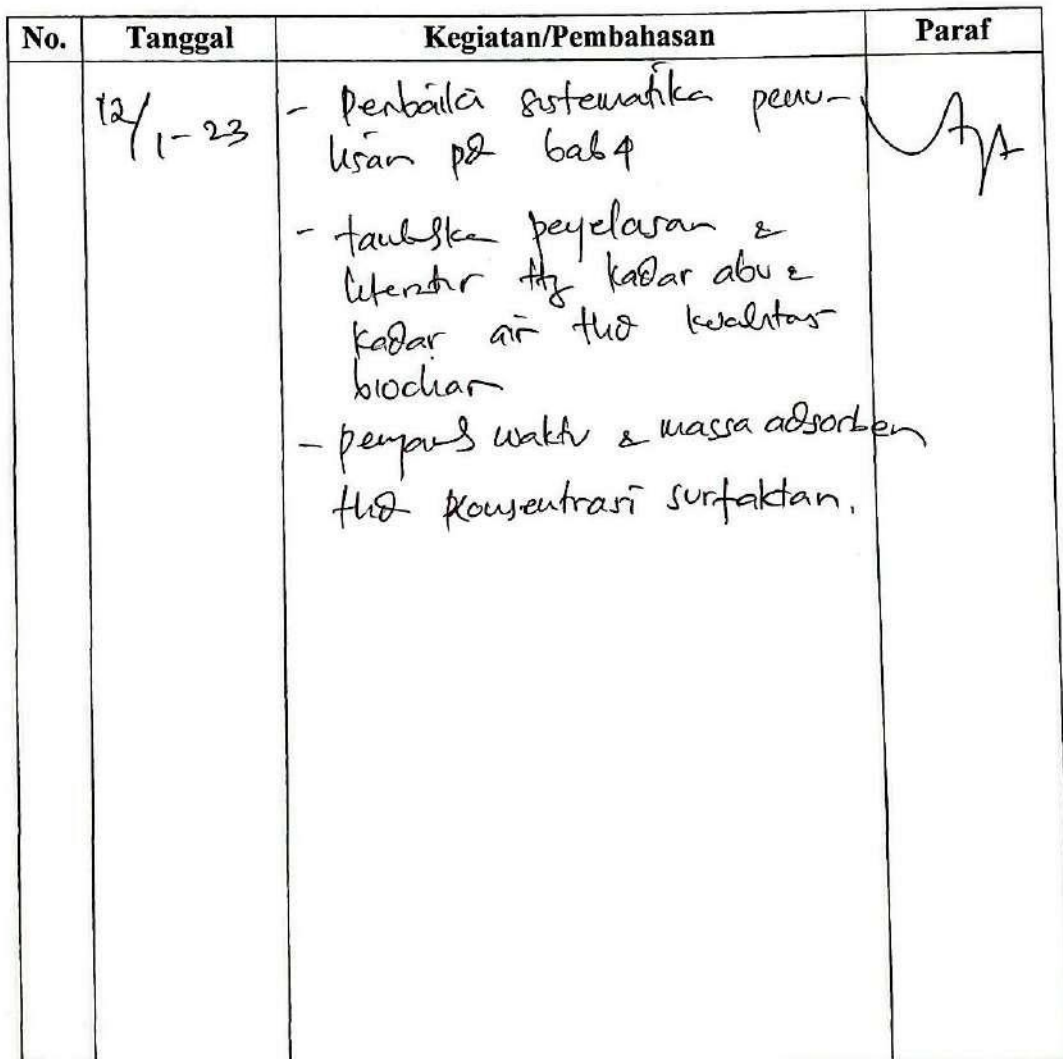 No. Tanggal Kegiatan/Pembahasan Paraf
12/1-23
- Perbaiki sistematika penu-
lisan pd bab 4
- tambahkan penjelasan &
literatur ttg kadar abu &
kadar air thd kualitas
biochar
- pengaruh waktu & massa adsorben
thd konsentrasi surfaktan.